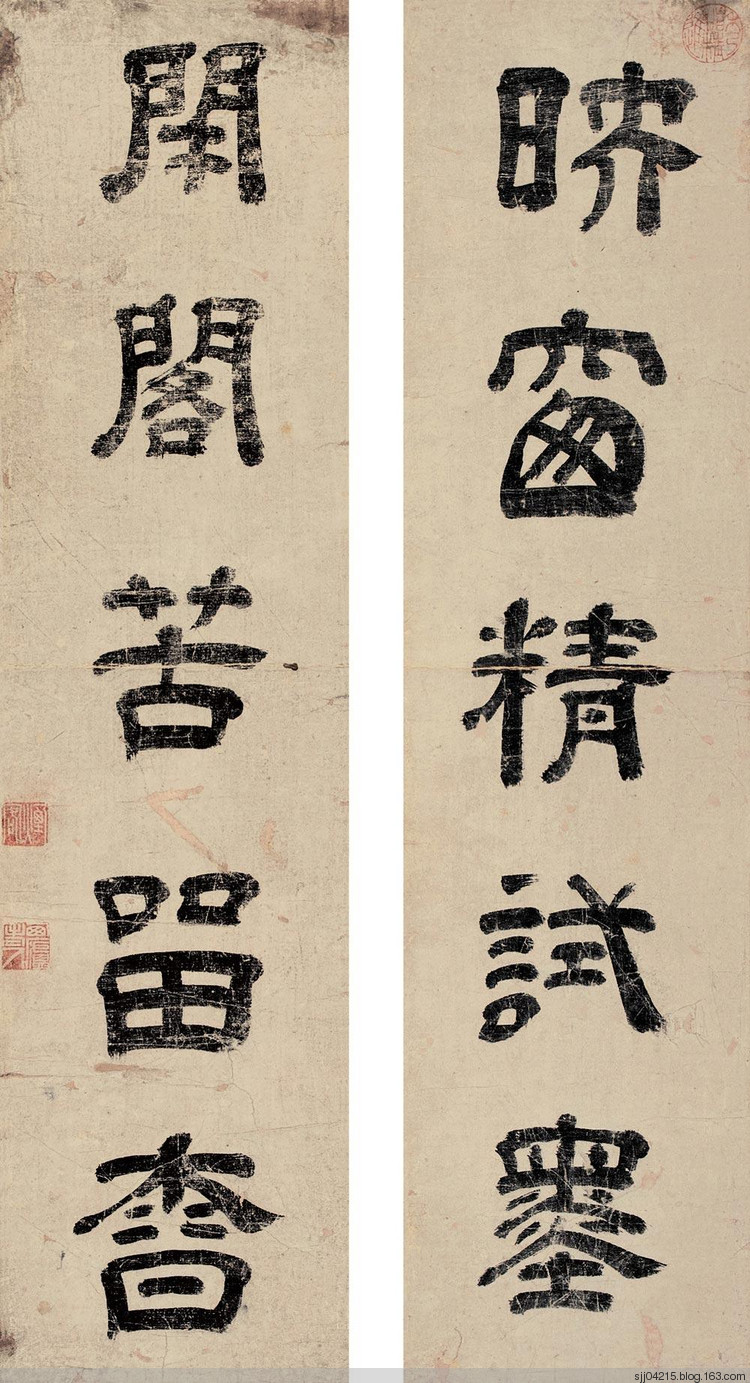 映窗精試墨
閉閣苦留香
sjj04215.blog.163.com